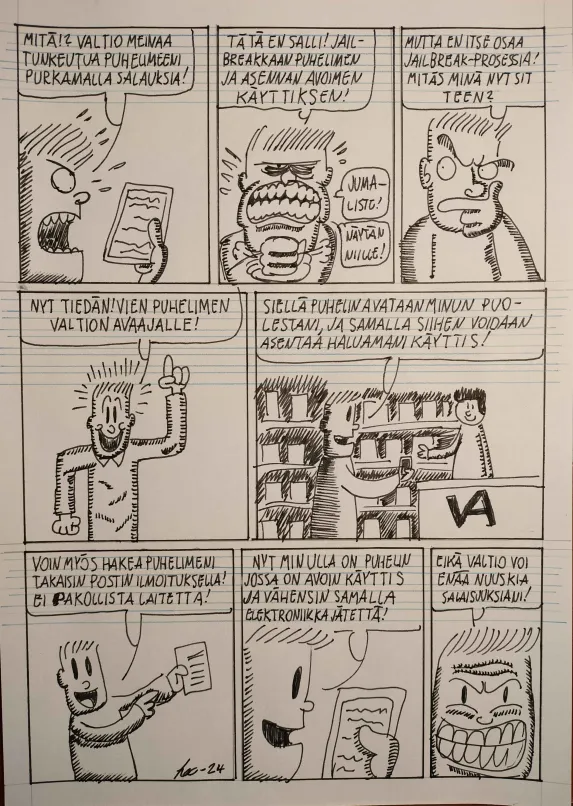 MITÄ!? VALTIO MEINAA
TUNKEUTUA PUHELIMEENI
PURKAMALLA SALAUKSIA!
TÄTÄ EN SALLI! JAIL-
BREAKKAAN PUHELIMEN
JA ASENNAN AVOIMEN
KÄYTTIKSEN!
JUMA-
LISTE!
NÄYTÄN
NIILLE!
MUTTA EN ITSE OSAA
JAILBREAK-PROSESSIA!
MITÄS MINÄ NYT SIT
TEEN?
NYT TIEDÄN! VIEN PUHELIMEN
VALTION AVAAJALLE!
SIELLÄ PUHELIN AVATAAN MINUN PUO-
LESTANI, JA SAMALLA SIIHEN VOIDAAN
ASENTAA HALUAMANI KÄYTTIS!
VA
VOIN MYÖS HAKEA PUHELIMENI
TAKAISIN POSTIN ILMOITUKSELLA!
EI PAKOLLISTA LAITETTA!
NYT MINULLA ON PUHELIN
JOSSA ON AVOIN KÄYTTIS
JA VÄHENSIN SAMALLA
ELEKTRONIIKKAJÄTETTÄ!
EIKÄ VALTIO VOI
ENÄÄ NUUSKIA
SALAISUUKSIANI!
-24